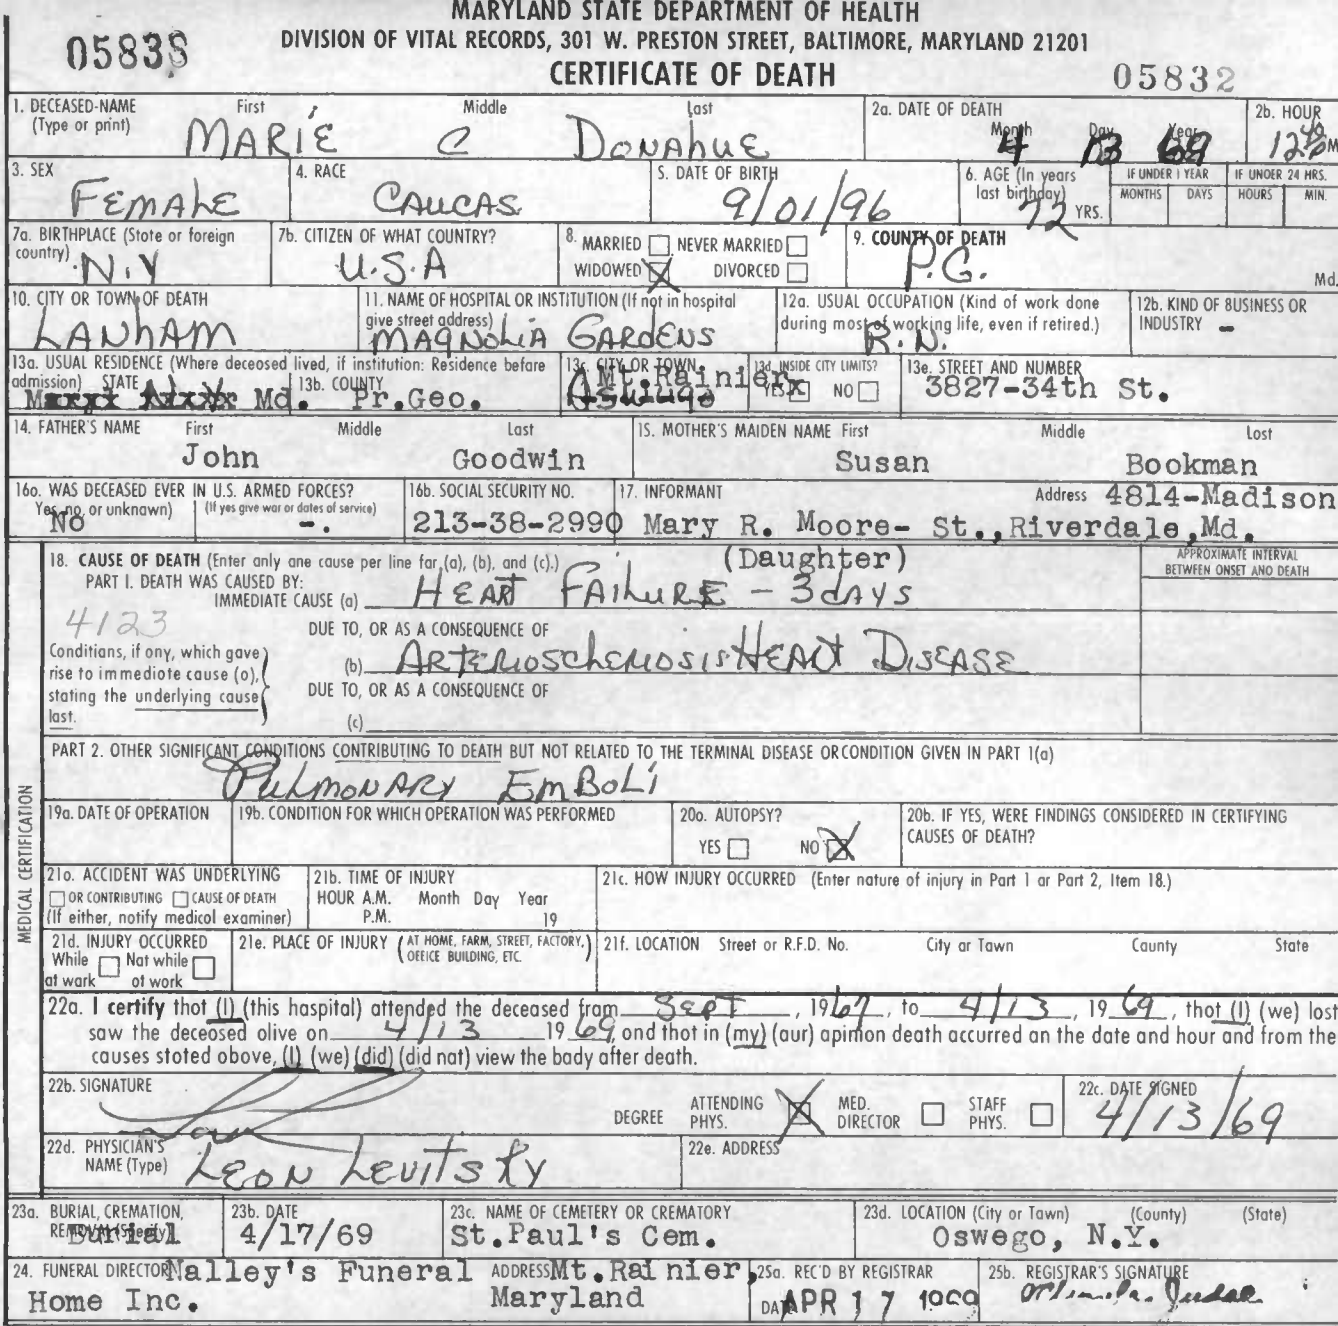 MARYLAND STATE DEPARTMENT OF HEALTH
DIVISION OF VITAL RECORDS, 301 W. PRESTON STREET, BALTIMORE, MARYLAND 21201
CERTIFICATE OF DEATH
05838 05832
1. DECEASED-NAME (Type or print) First Middle Last
MARIE C DONAHUE
2a. DATE OF DEATH Month Day Year
4 13 69
2b. HOUR
12 40 P M
3. SEX
FEMALE
4. RACE
CAUCAS
5. DATE OF BIRTH
9/01/96
6. AGE (In years last birthday)
72 YRS.
IF UNDER 1 YEAR MONTHS DAYS
IF UNDER 24 HRS. HOURS MIN.
7a. BIRTHPLACE (State or foreign country)
N.Y
7b. CITIZEN OF WHAT COUNTRY?
U.S.A
8. MARRIED NEVER MARRIED
WIDOWED X DIVORCED
9. COUNTY OF DEATH
P.G. Md.
10. CITY OR TOWN OF DEATH
LANHAM
11. NAME OF HOSPITAL OR INSTITUTION (If not in hospital give street address)
MAGNOLIA GARDENS
12a. USUAL OCCUPATION (Kind of work done during most of working life, even if retired.)
R.N.
12b. KIND OF BUSINESS OR INDUSTRY -
13a. USUAL RESIDENCE (Where deceased lived, if institution: Residence before admission) STATE
Md.
13b. COUNTY
Pr.Geo.
13c. CITY OR TOWN
Mt.Rainier
13d. INSIDE CITY LIMITS?
YES x NO
13e. STREET AND NUMBER
3827-34th St.
14. FATHER'S NAME First Middle Last
John Goodwin
15. MOTHER'S MAIDEN NAME First Middle Lost
Susan Bookman
16a. WAS DECEASED EVER IN U.S. ARMED FORCES?
Yes, no, or unknown) (If yes give war or dates of service)
No -.
16b. SOCIAL SECURITY NO.
213-38-2990
17. INFORMANT Address 4814-Madison
Mary R. Moore- St.,Riverdale,Md.
(Daughter)
18. CAUSE OF DEATH (Enter only one cause per line for (a), (b), and (c).)
APPROXIMATE INTERVAL BETWEEN ONSET AND DEATH
PART I. DEATH WAS CAUSED BY:
IMMEDIATE CAUSE (a) HEART FAILURE - 3 DAYS
4123
DUE TO, OR AS A CONSEQUENCE OF
Conditions, if any, which gave rise to immediate cause (a), stating the underlying cause last.
(b) ARTERIOSCHEROSIS HEART DISEASE
DUE TO, OR AS A CONSEQUENCE OF
(c)
PART 2. OTHER SIGNIFICANT CONDITIONS CONTRIBUTING TO DEATH BUT NOT RELATED TO THE TERMINAL DISEASE OR CONDITION GIVEN IN PART 1(a)
PULMONARY EMBOLI
MEDICAL CERTIFICATION
19a. DATE OF OPERATION
19b. CONDITION FOR WHICH OPERATION WAS PERFORMED
20a. AUTOPSY?
YES NO X
20b. IF YES, WERE FINDINGS CONSIDERED IN CERTIFYING CAUSES OF DEATH?
21a. ACCIDENT WAS UNDERLYING
OR CONTRIBUTING CAUSE OF DEATH
(If either, notify medical examiner)
21b. TIME OF INJURY
HOUR A.M. Month Day Year
P.M. 19
21c. HOW INJURY OCCURRED (Enter nature of injury in Part 1 or Part 2, Item 18.)
21d. INJURY OCCURRED
While at work Not while at work
21e. PLACE OF INJURY (AT HOME, FARM, STREET, FACTORY, OFFICE BUILDING, ETC.)
21f. LOCATION Street or R.F.D. No. City or Town County State
22a. I certify that (I) (this hospital) attended the deceased from SEPT, 1967, to 4/13, 1969, that (I) (we) last
saw the deceased alive on 4/13 1969, and that in (my) (our) opinion death occurred on the date and hour and from the
causes stated above, (I) (we) (did) (did not) view the body after death.
22b. SIGNATURE
DEGREE ATTENDING PHYS. X MED. DIRECTOR STAFF PHYS.
22c. DATE SIGNED
4/13/69
22d. PHYSICIAN'S NAME (Type)
LEON LEVITSKY
22e. ADDRESS
23a. BURIAL, CREMATION, REMOVAL (Specify)
Burial
23b. DATE
4/17/69
23c. NAME OF CEMETERY OR CREMATORY
St.Paul's Cem.
23d. LOCATION (City or Town) (County) (State)
Oswego, N.Y.
24. FUNERAL DIRECTOR Nalley's Funeral Home Inc.
ADDRESS Mt.Rainier, Maryland
25a. REC'D BY REGISTRAR
DATE APR 17 1969
25b. REGISTRAR'S SIGNATURE